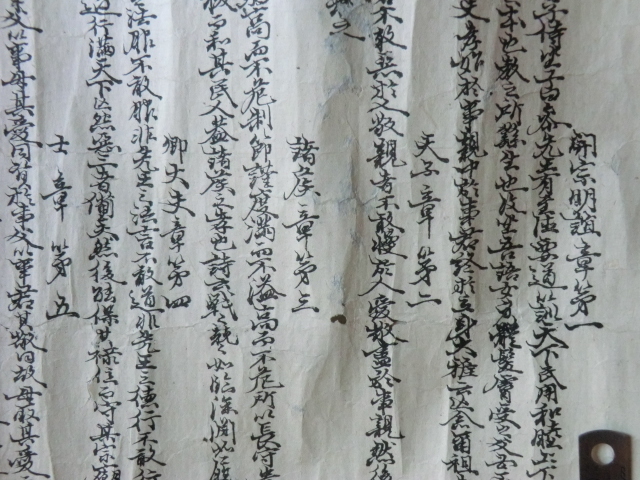 開宗明誼章第一
子侍坐子曰參先王有至德要道訓天下民用和睦上下
之本也教之所繇生也復坐吾語女身體髮膚受之父母不
夫孝始於事親中於事君終於立身大雅云亡念爾祖
天子章第二
者不敢惡於人敬親者不敢慢於人愛敬盡於事親然後
賴之
諸侯章第三
高而不危制節謹度滿而不溢高而不危所以長守貴
稷而和其民人蓋諸侯之孝也詩云戰〻兢〻如臨深淵如履
卿大夫章第四
法服不敢服非先王之法言不敢道非先王之德行不敢行
道行滿天下亡怨惡三者備矣然後能保其祿位而守其宗廟
士章第五
父以事母其愛同資於事父以事君其敬同故母取其愛